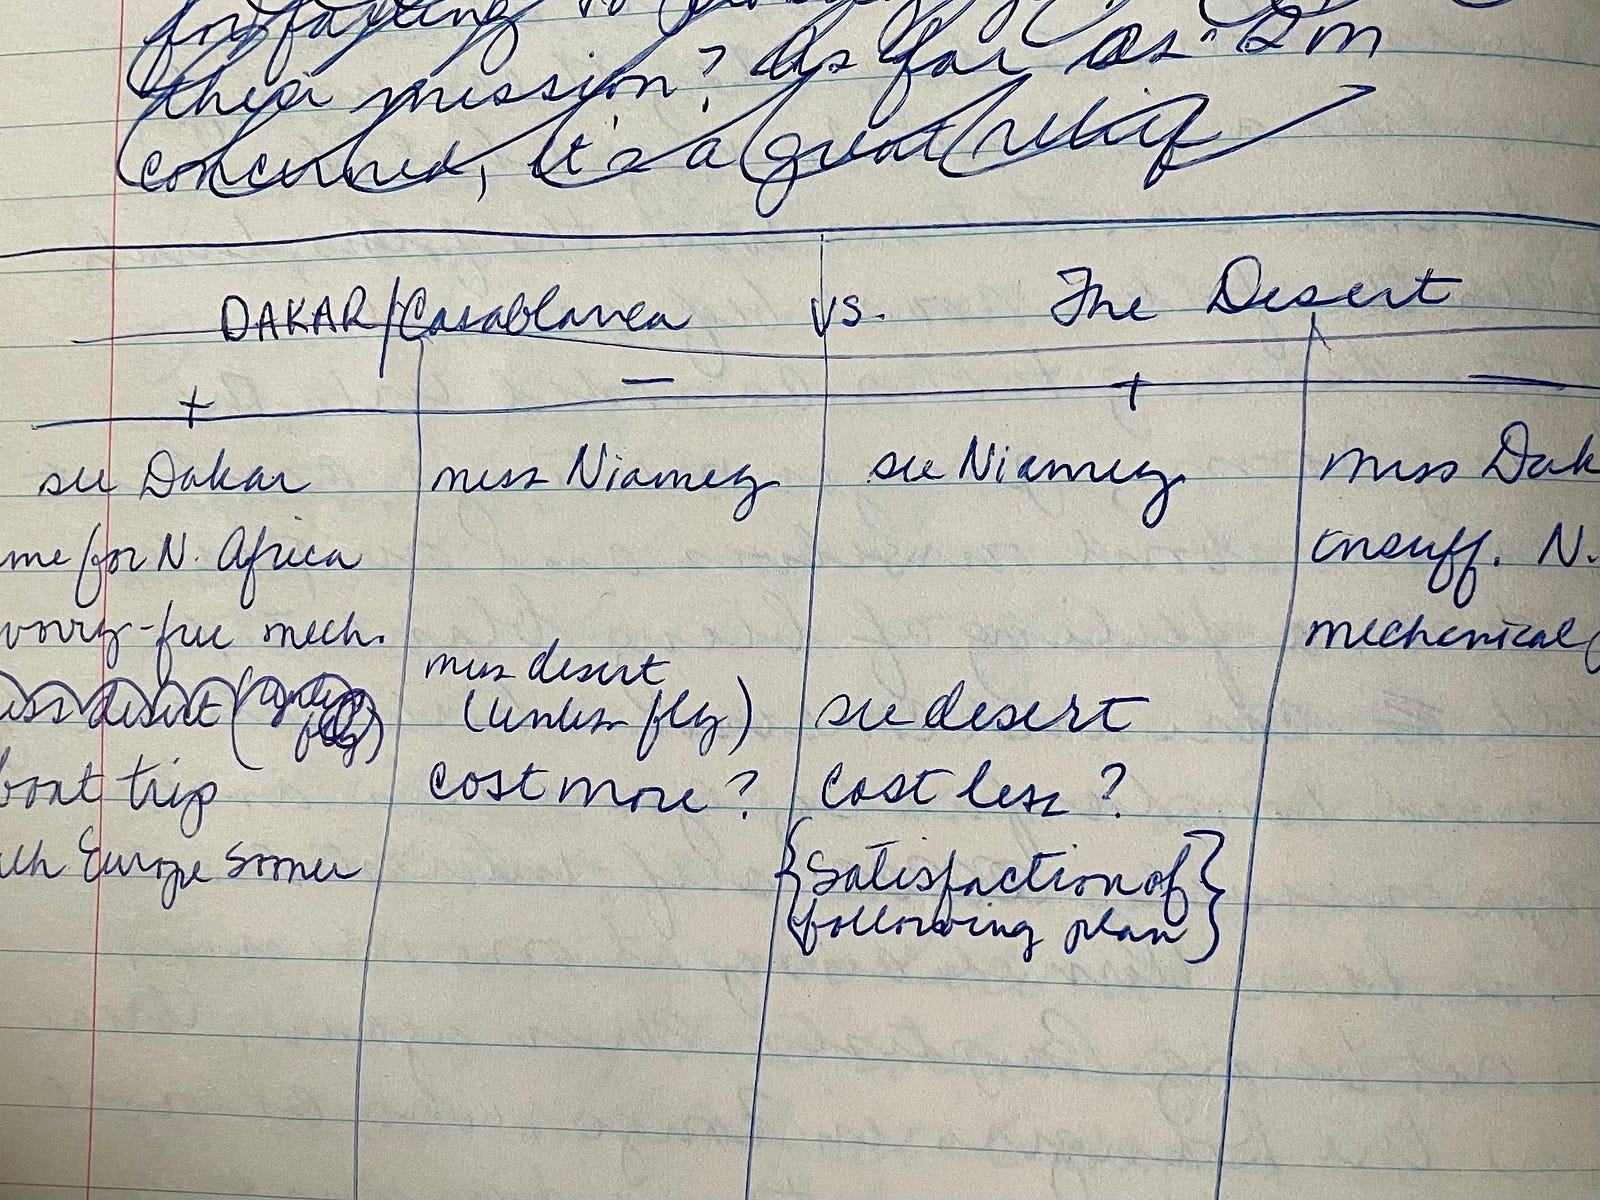 this mission? As far as I'm
concerned, it's a great relief
DAKAR/Casablanca vs. The Desert
+ — + —
see Dakar miss Niamey see Niamey miss Dak
me for N. Africa insuff. N.
worry-free mech. mechanical
miss desert
desert (unless fly) see desert
boat trip cost more? cost less?
Europe sooner {Satisfaction of
following plan}